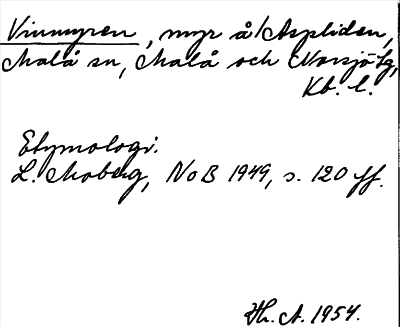 Vinmyren, myr å Aspliden,
Malå sn, Malå och Norsjö tg,
Vb. l.
Etymologi.
L. Moberg, NoB 1949, s. 120 ff.
Th. A. 1954.